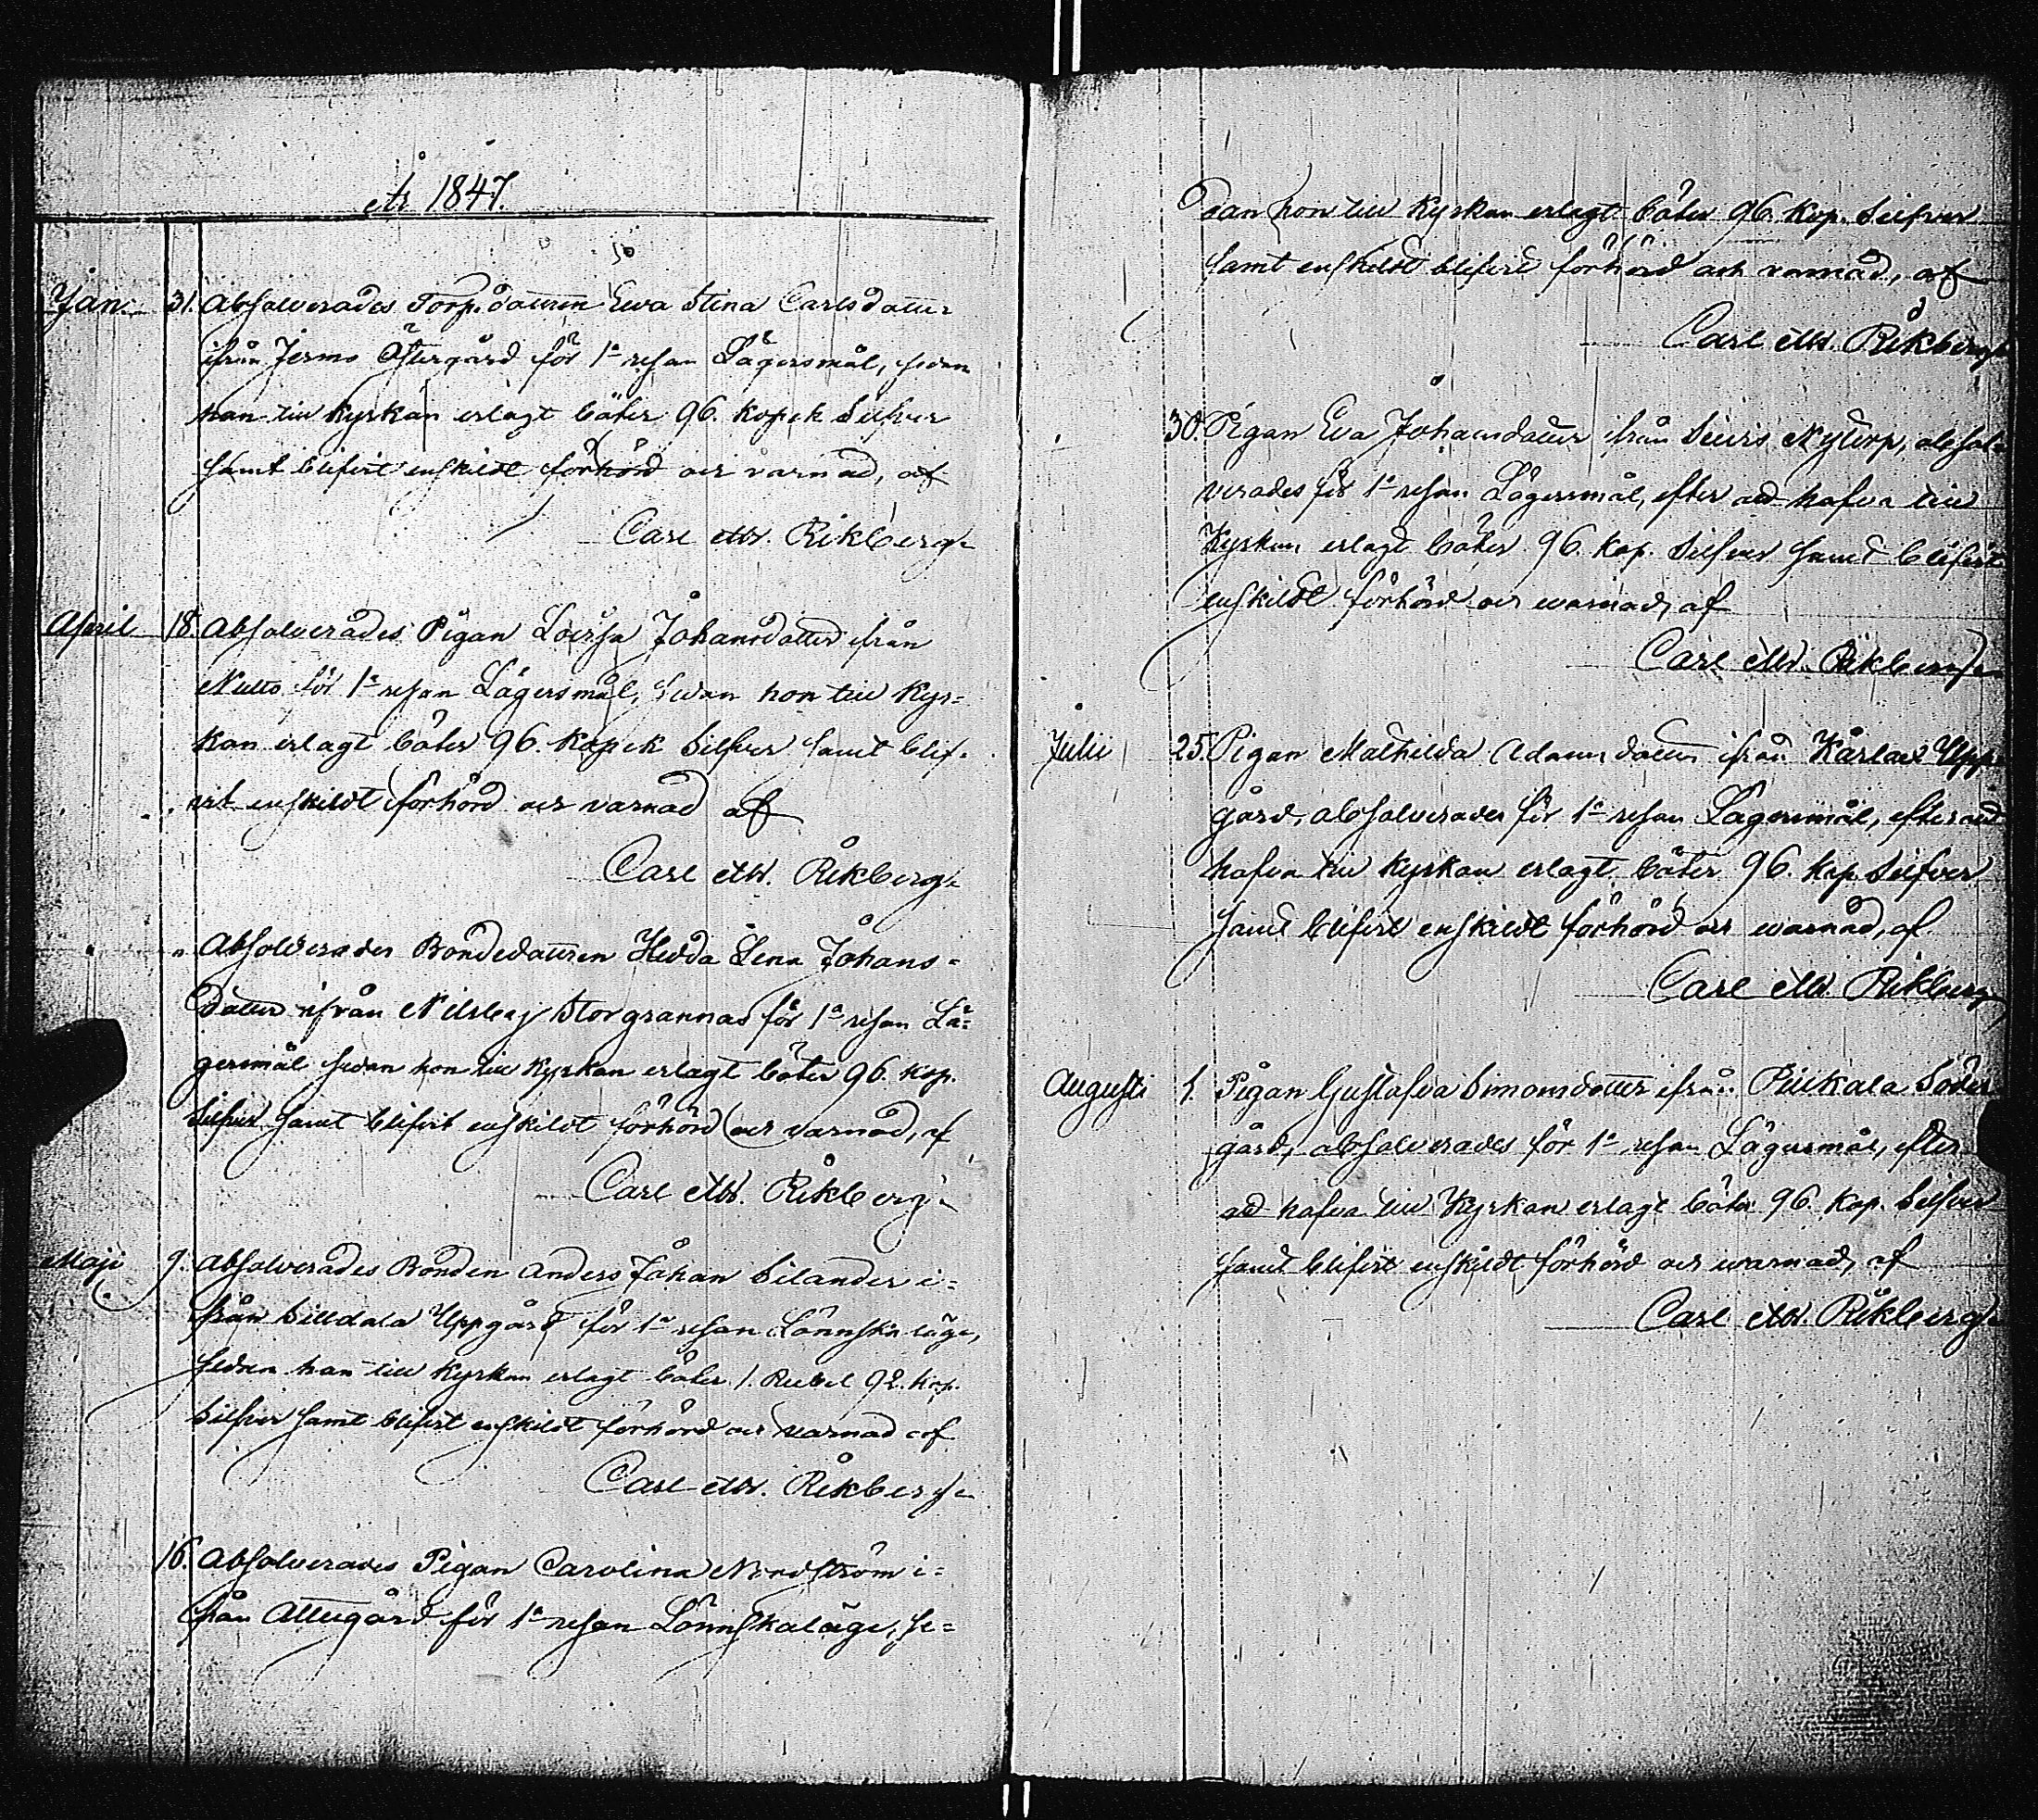 År 1847.
Jan. 31. Absolverades Torp.dottren Ewa Stina Carlsdotter
ifrån Jermo Östergård för 1ª resan Lägersmål, sedan
hon till Kyrkan erlagt böter 96. kopek Silfver
samt blifvit enskildt förhörd och varnad, af
Carl Rikberg
April 18. Absolverades Pigan Lovisa Johansdotter ifrån
för 1ª resan Lägersmål, sedan hon till Kyr=
kan erlagt böter 96. kopek Silfver samt blif=
vit enskildt förhörd och varnad af
Carl Rikberg
" " Absolverades Bondedottren Hedda Lena Johans=
dotter ifrån Nilsby Storgrannas för 1ª resan Lä=
gersmål sedan hon till Kyrkan erlagt böter 96. kop.
Silfver samt blifvit enskildt förhörd och varnad, af
Carl Rikberg
Maji 9. Absolverades Bonden Anders Johan Silander i=
från Silldala Uppgård för 1ª resan Lönnskaläge,
sedan han till Kyrkan erlagt böter 1. Rubel 92. kop.
Silfver samt blifvit enskildt förhörd och varnad af
Carl Rikberg
16. Absolverades Pigan Carolina Nordström i=
från Attugård för 1ª resan Lönnskaläge, se=
dan hon till Kyrkan erlagt böter 96. kop. Silfver
samt enskildt blifvit förhörd och varnad, af
Carl Rikberg
30. Pigan Eva Johansdotter ifrån Nytorp, absol=
verades för 1ª resan Lägersmål, efter att hafva till
Kyrkan erlagt böter 96. kop. Silfver samt blifvit
enskildt förhörd och warnad, af
Carl Rikberg
Julii 25. Pigan Mathilda Adamsdotter ifrån Kårlax Upp=
gård, absolverades för 1ª resan Lägersmål, efter att
hafva till Kyrkan erlagt böter 96. kop. Silfver
samt blifvit enskildt förhörd och warnad, af
Carl Rikberg
Augusti 1. Pigan Gustafva Simonsdotter ifrån Söder
gård, absolverades för 1ª resan Lägersmål, efter
att hafva till Kyrkan erlagt böter 96. kop. Silfver
samt blifvit enskildt förhörd och warnad, af
Carl Rikberg